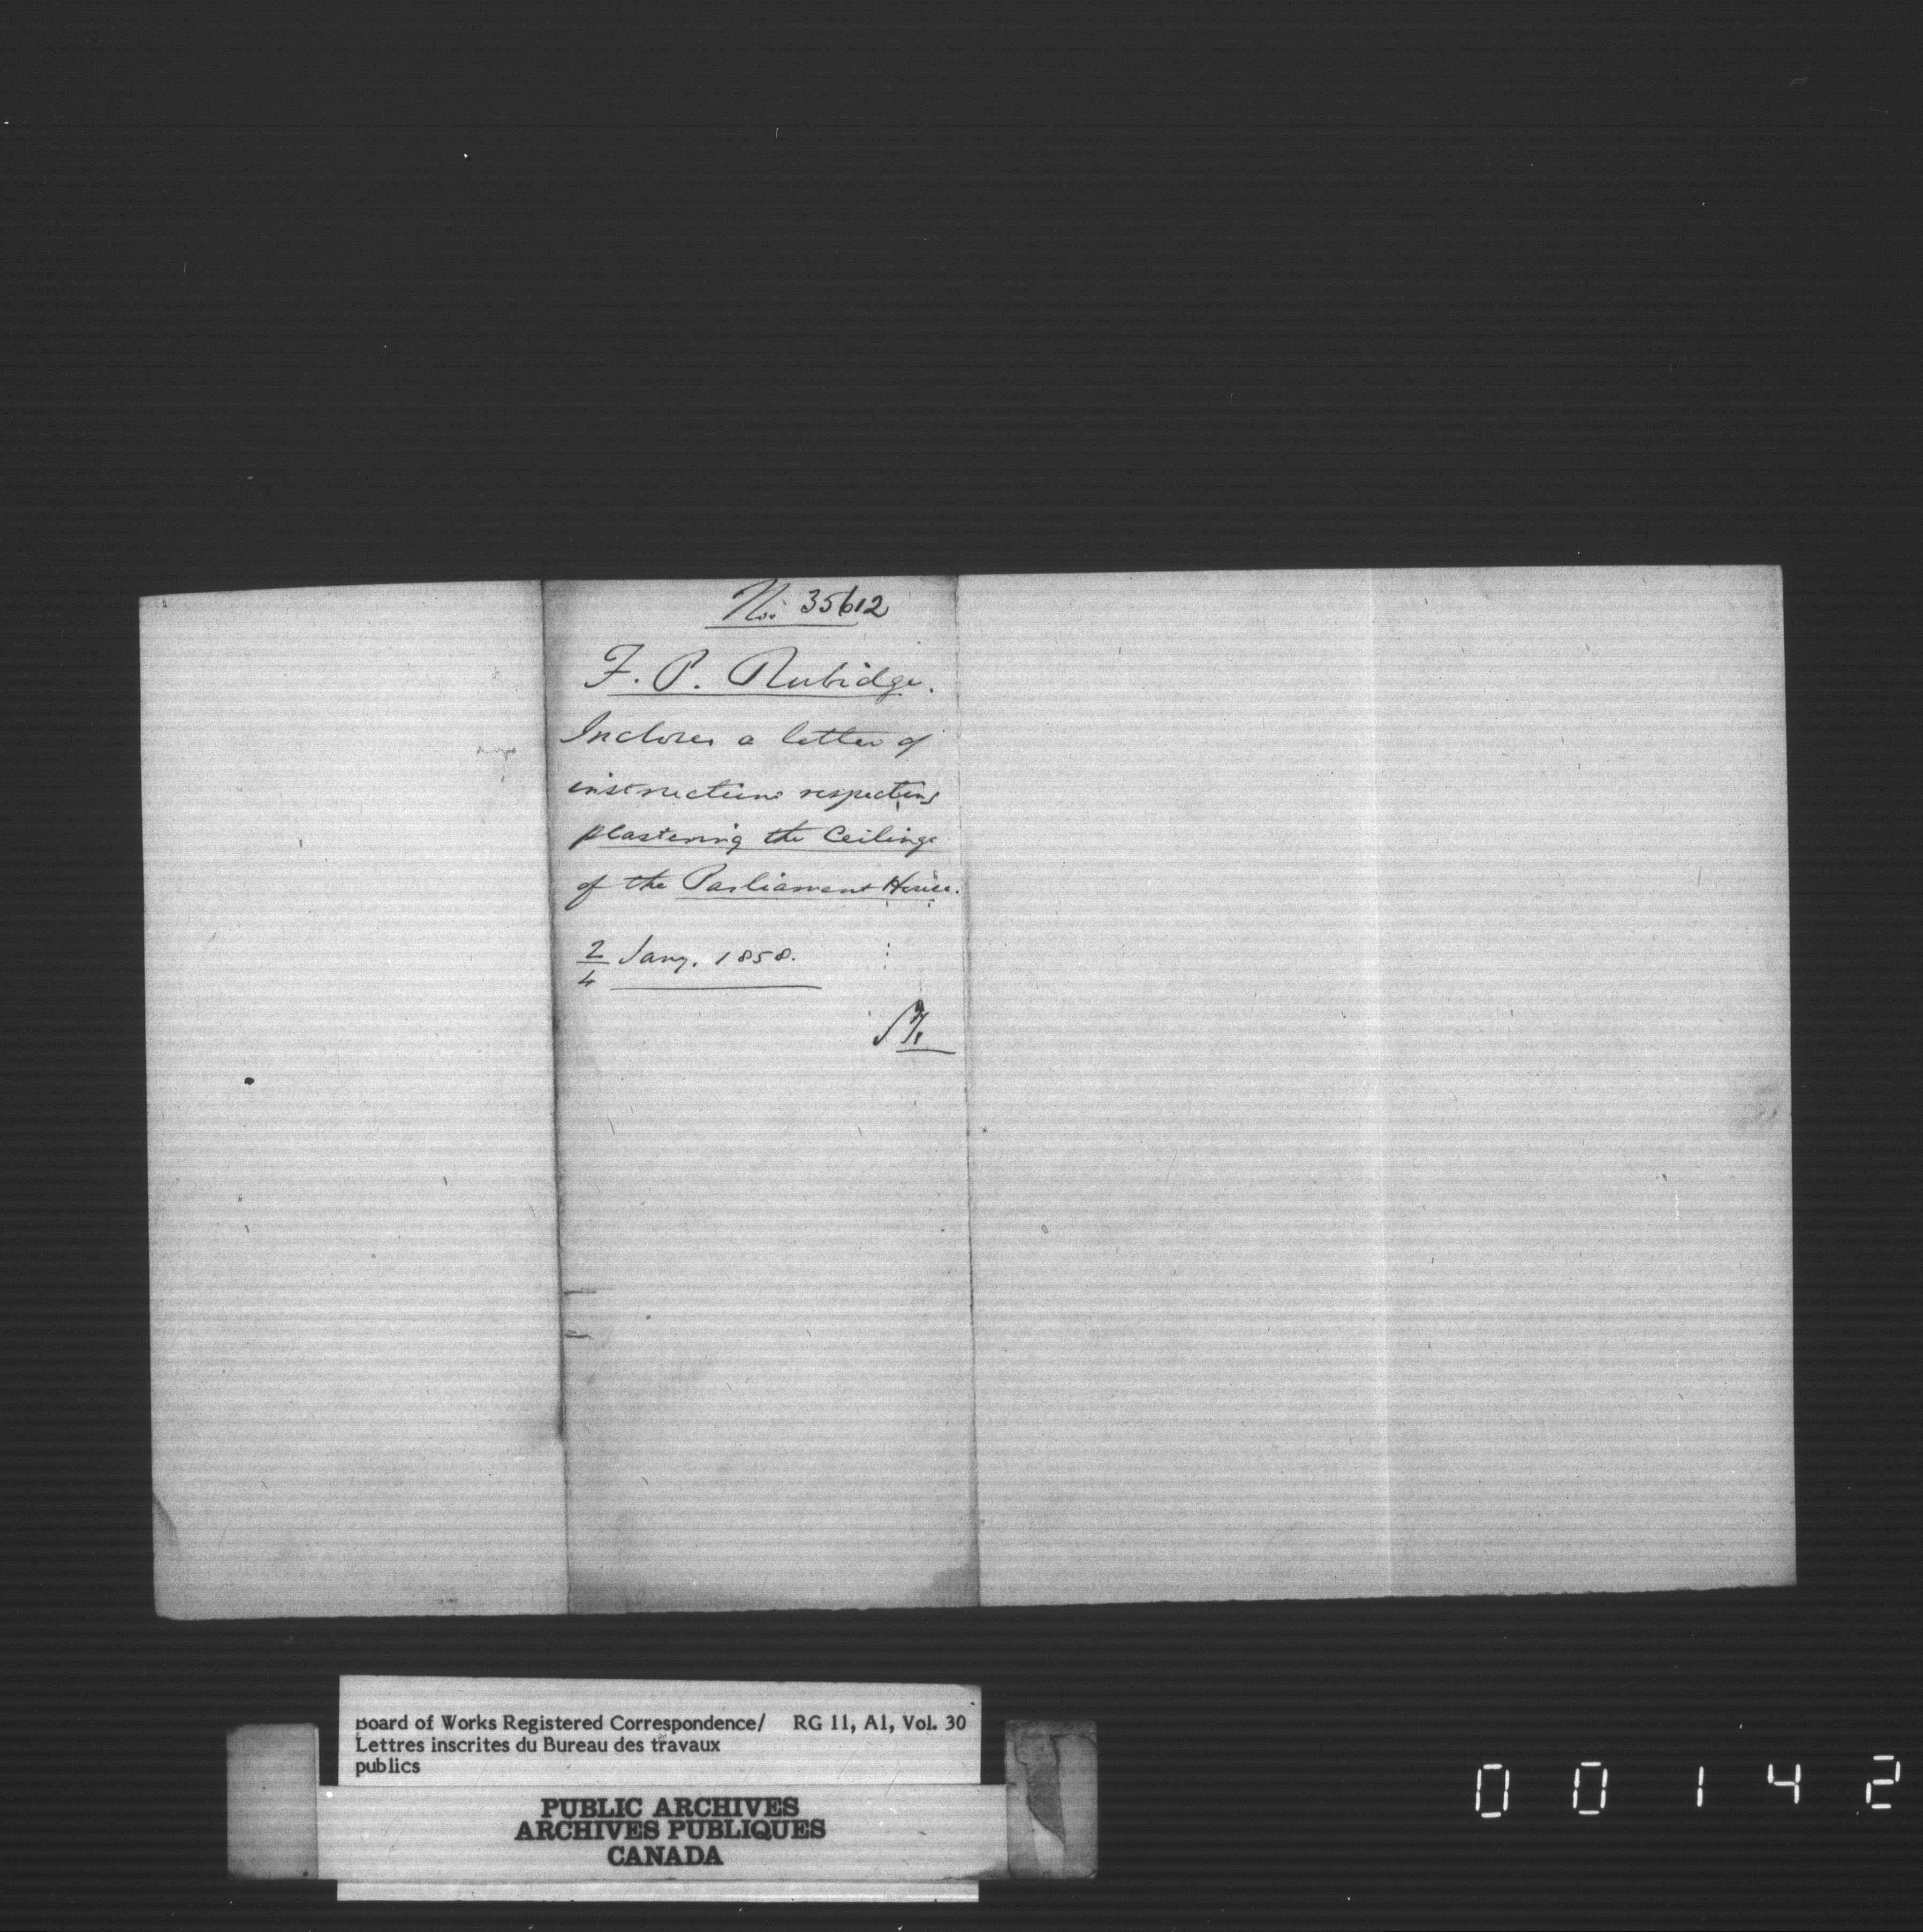 No. 35612
F. P. Rubidge.
Incloses a letter of
instructions respecting
plastering the Ceilings
of the Parliament House.
2/4 Jany. 1858.
Board of Works Registered Correspondence/ RG 11, A1, Vol. 30
Lettres inscrites du Bureau des travaux
publics
PUBLIC ARCHIVES
ARCHIVES PUBLIQUES
CANADA
00142